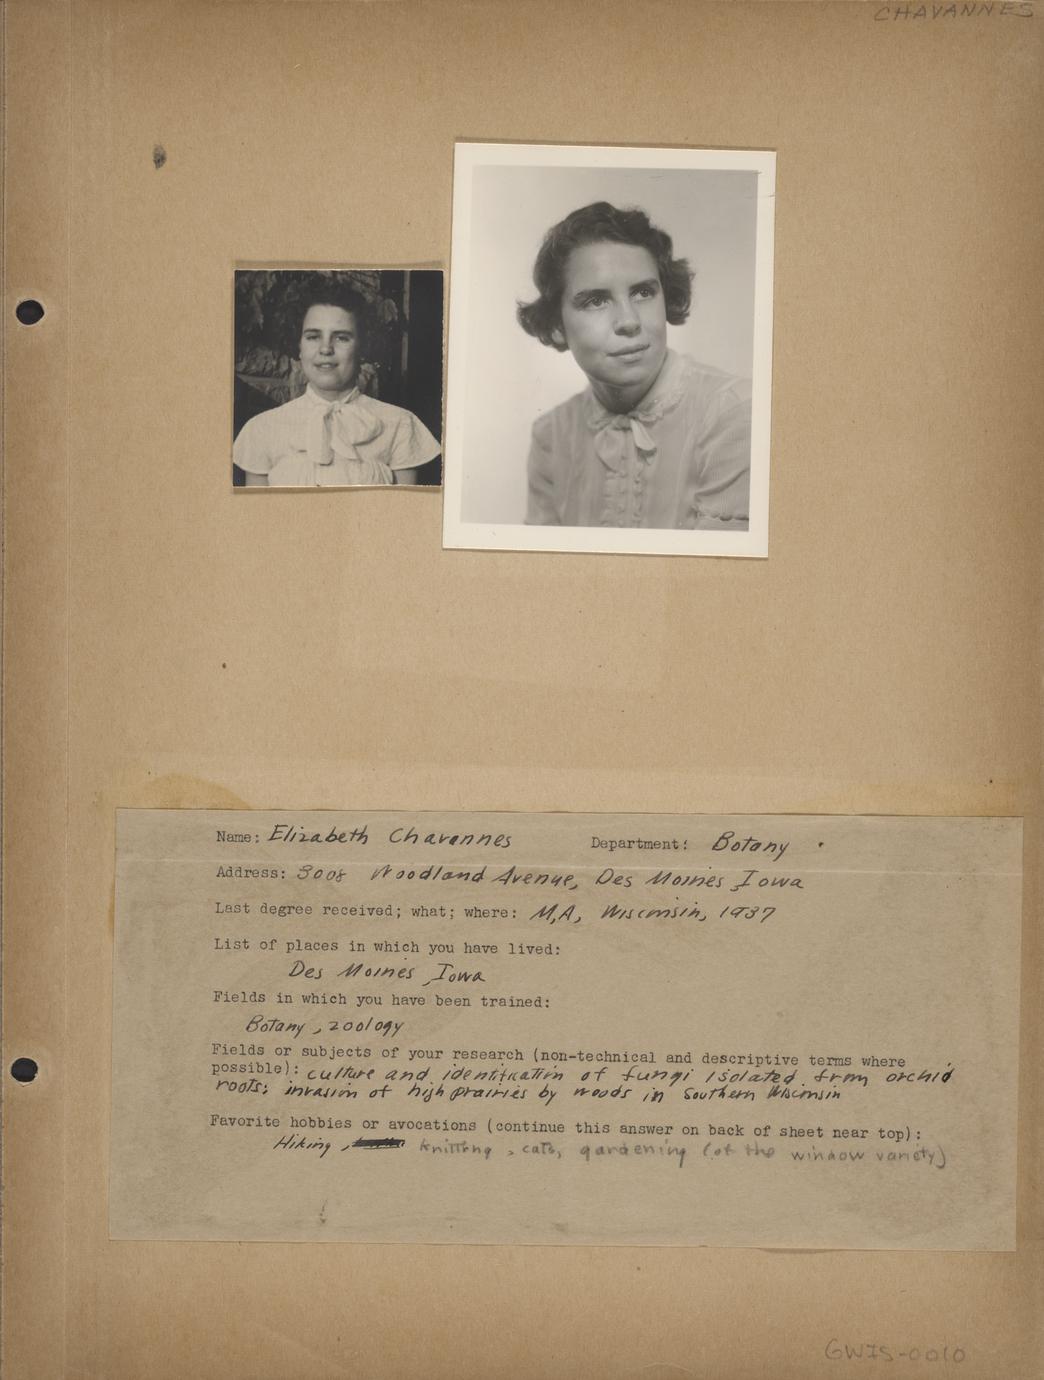 CHAVANNES
Name: Elizabeth Chavannes Department: Botany
Address: 3008 Woodland Avenue, Des Moines, Iowa
Last degree received; what; where: M,A, Wisconsin, 1937
List of places in which you have lived:
Des Moines, Iowa
Fields in which you have been trained:
Botany, zoology
Fields or subjects of your research (non-technical and descriptive terms where
possible): culture and identification of fungi isolated from orchid
roots; invasion of high prairies by woods in Southern Wisconsin
Favorite hobbies or avocations (continue this answer on back of sheet near top):
Hiking, knitting, cats, gardening (of the window variety)
GWIS-0010